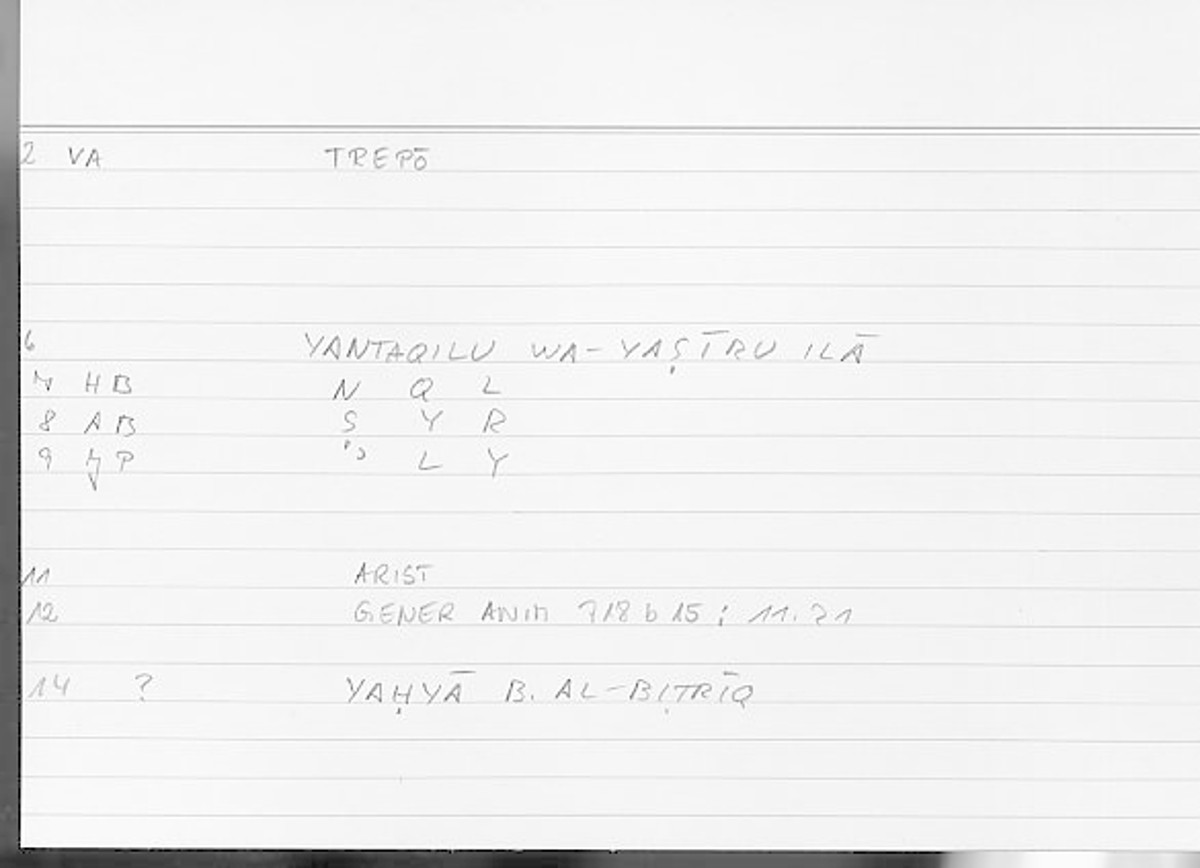 2 VA TREPŌ
6 YANTAQILU WA-YAṢĪRU ILĀ
7 HB N Q L
8 AB S Y R
9 P ʾ L Y
11 ARIST
12 GENER ANIM 718 b 15; 11.21
14 ? YAḤYĀ B. AL-BIṬRĪQ